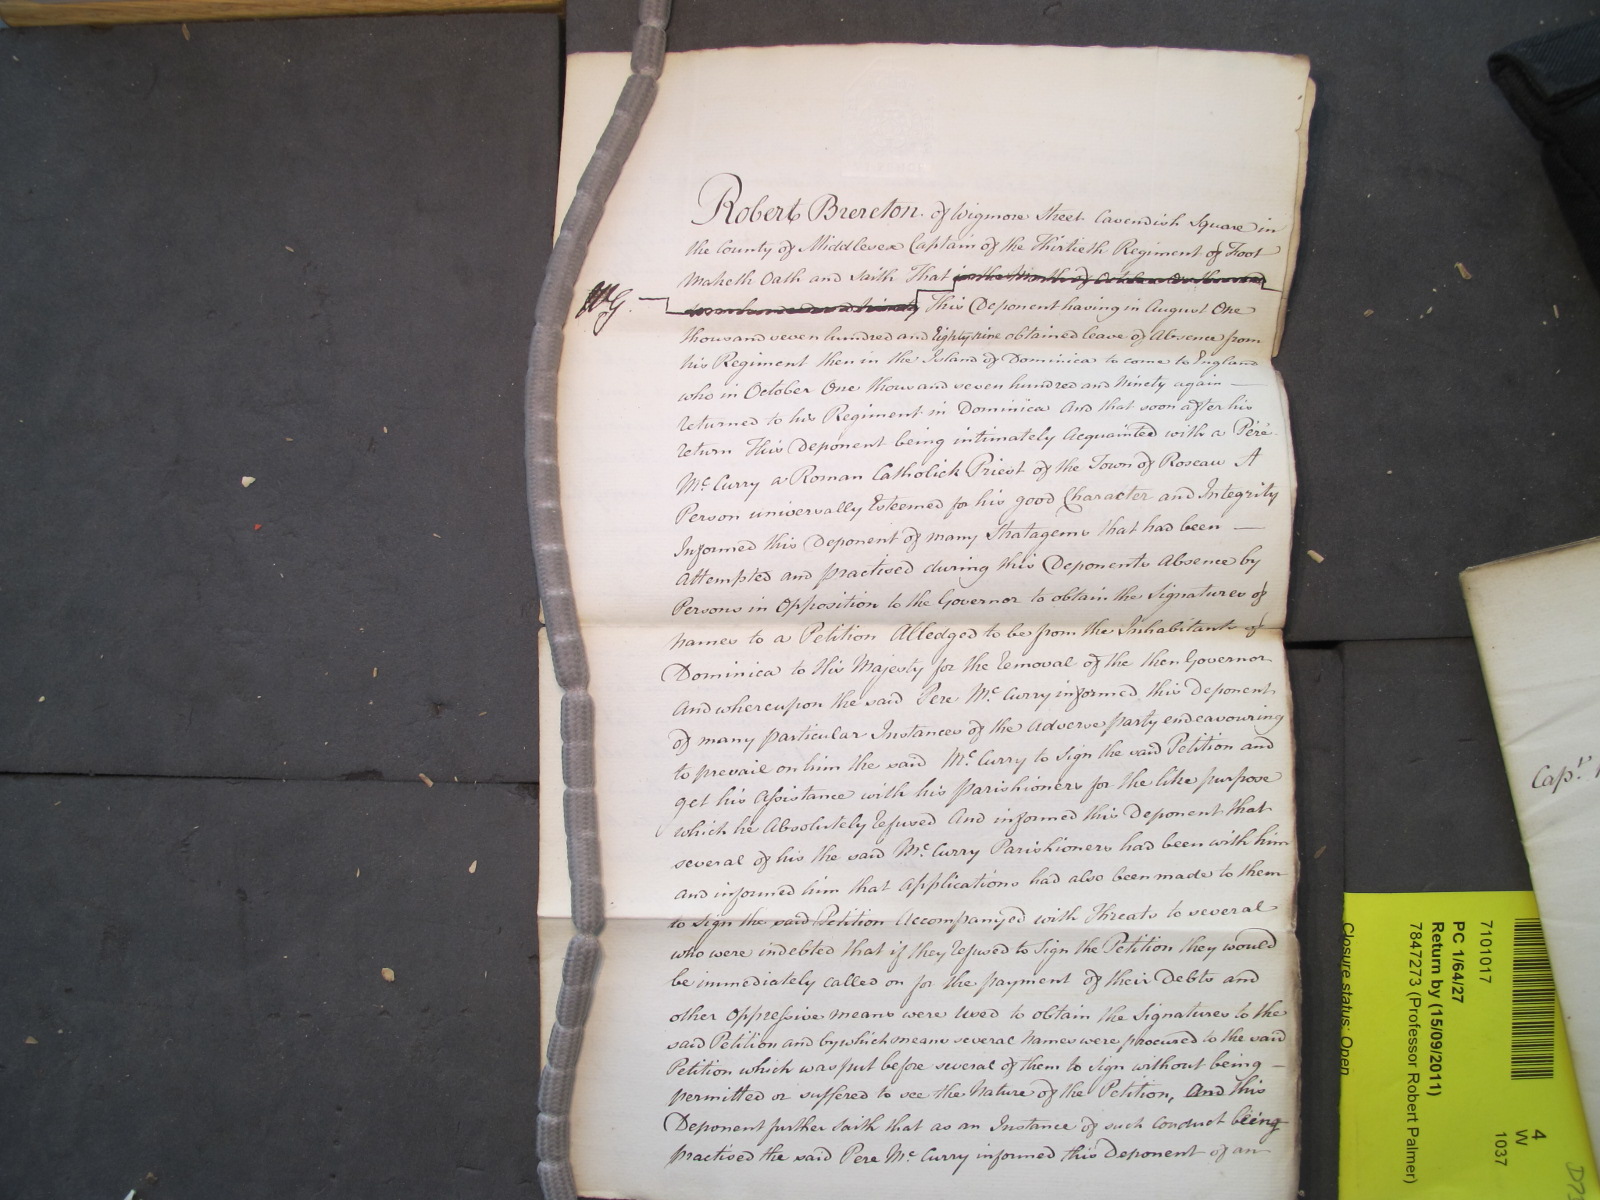 Robert Brereton of Wigmore Street Cavendish Square in
the County of Middlesex Captain of the Thirtieth Regiment of Foot
Maketh Oath and Saith That in the Month of October One thousand
seven hundred and ninety This Deponent having in August One
thousand seven hundred and Eighty nine obtained leave of Absence from
his Regiment then in the Island of Dominica to come to England
who in October One thousand seven hundred and Ninety again —
returned to his Regiment in Dominica And that soon after his
return This Deponent being intimately Acquainted with a Peré
Mc. Curry a Roman Catholick Priest of the Town of Roseau A
Person universally Esteemed for his good Character and Integrity
Informed this Deponent of many Stratagems that had been —
attempted and practised during this Deponents Absence by
Persons in Opposition to the Governor to obtain the Signatures of
names to a Petition Alledged to be from the Inhabitants of
Dominica to His Majesty for the removal of the then Governor
And whereupon the said Pere Mc. Curry informed this Deponent
of many particular Instances of the adverse party endeavouring
to prevail on him the said Mc. Curry to Sign the said Petition and
get his Assistance with his Parishioners for the like purpose
which he Absolutely refused And informed this Deponent that
several of his the said Mc. Curry Parishioners had been with him
and informed him that Applications had also been made to them
to Sign the said Petition Accompanyed with Threats to several
who were indebted that if they refused to Sign the Petition they would
be immediately called on for the payment of their Debts and
other Oppressive means were used to obtain the Signatures to the
said Petition and by which means several names were procured to the said
Petition which was put before several of them to Sign without being —
permitted or suffered to see the Nature of the Petition, And this
Deponent further saith that as an Instance of such Conduct being
practised the said Pere Mc. Curry informed this Deponent of an
WG.
Capt.
7101017
PC 1/64/27
Return by (15/09/2011)
7847273 (Professor Robert Palmer)
Closure status: Open
4
W
1037